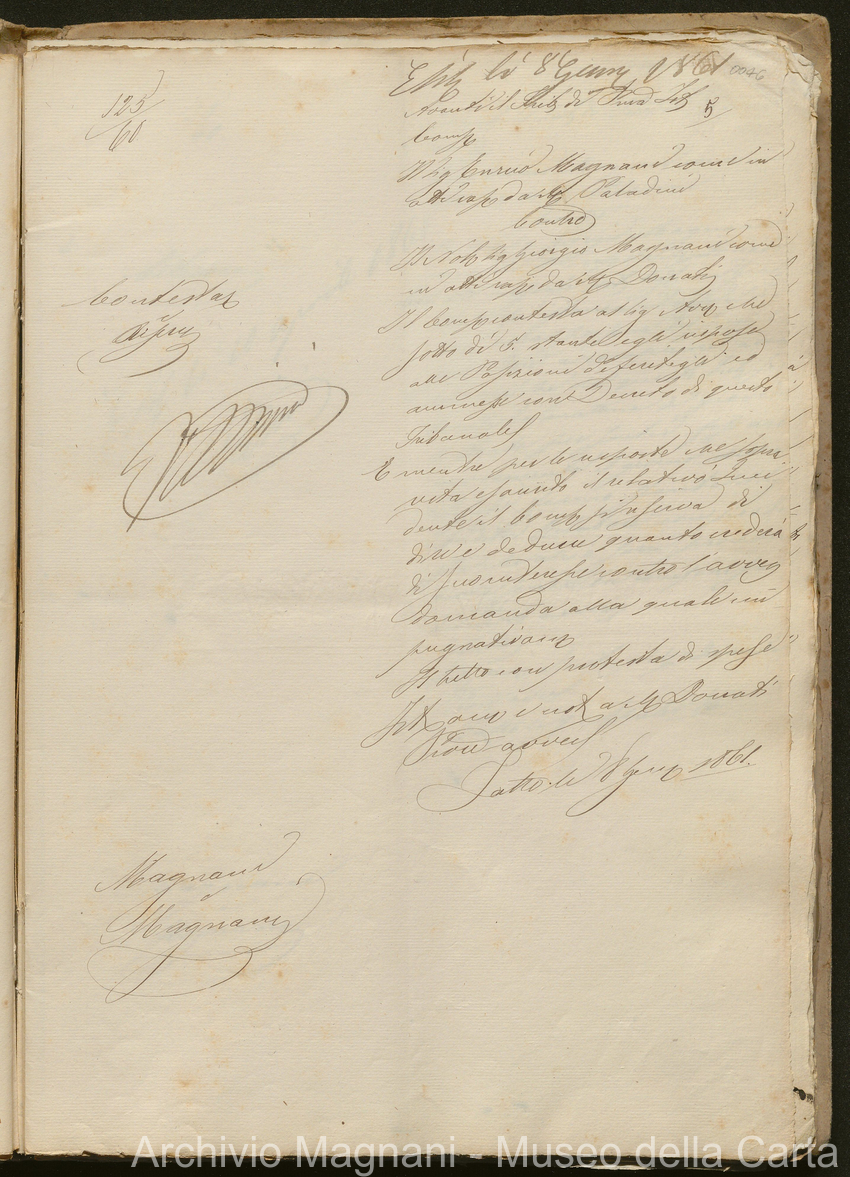 lì 8 Genn 1861
0046
5
125
60
Il Sig Enrico Magnani come in
atti rapp da Mr Paladini
Contro
Il Nob Sig Giorgio Magnani come
in atti rapp da Mr Donati
Il Comp contesta al Sig Avv che
sotto dì 5. stante egli rispose
alle Posizioni deferitegli ed
ammesse con Decreto di questo
Tribunale
E mentre per le risposte che sopra
vista esaurito il relativo Inci
dente il Comp si riserva di
dire e dedurre quanto crederà
di suo interesse contro l'avver
domanda alla quale im
pugnativam
Il tutto con protesta di spese
not a Mr Donati
Proc avvers
Fatto li 8 Genn 1861.
Contestaz
di
Magnani
e
Magnani
Archivio Magnani - Museo della Carta